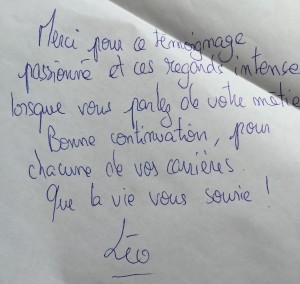 Merci pour ce témoignage
passionné et ces regards intense
lorsque vous parlez de votre métie
Bonne continuation, pour
chacune de vos carrières.
Que la vie vous sourie !
Léo